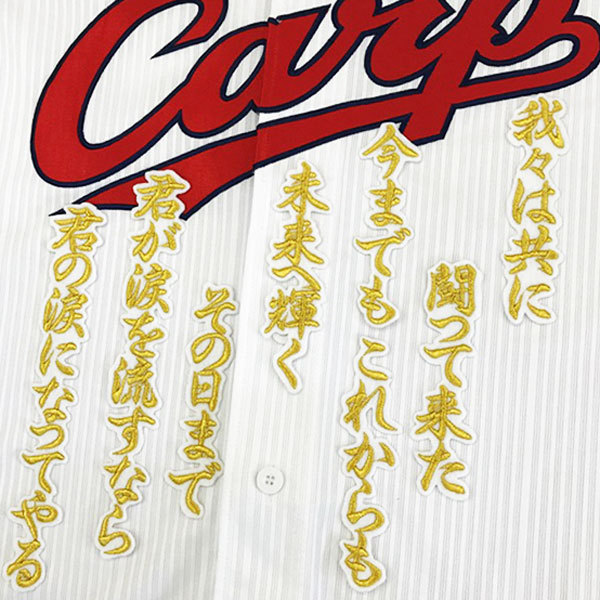 Carp
我々は共に
闘って来た
今までもこれからも
未来へ輝く
その日まで
君が涙を流すなら
君の涙になってやる